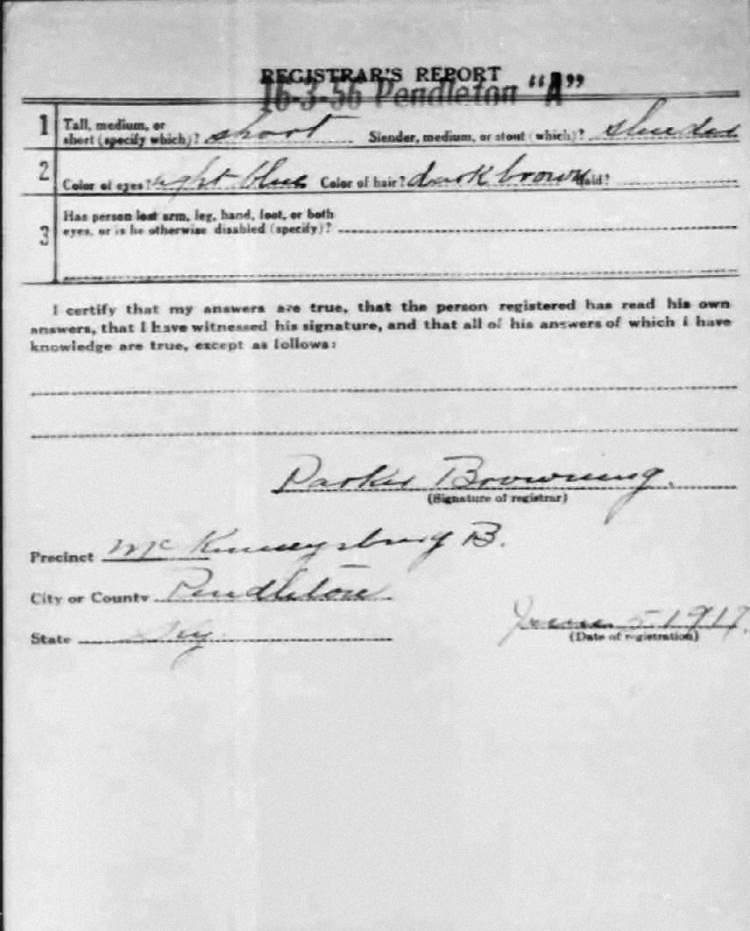 REGISTRAR'S REPORT
16-3-56 Pendleton "A"
1 Tall, medium, or short (specify which)? short Slender, medium, or stout (which)? slender
2 Color of eyes? light blue Color of hair? dark brown Bald?
3 Has person lost arm, leg, hand, foot, or both
eyes, or is he otherwise disabled (specify)?
I certify that my answers are true, that the person registered has read his own
answers, that I have witnessed his signature, and that all of his answers of which I have
knowledge are true, except as follows:
Parker Browning.
(Signature of registrar)
Precinct McKinneysburg B.
City or County Pendleton
State Ky. June 5 1917.
(Date of registration)